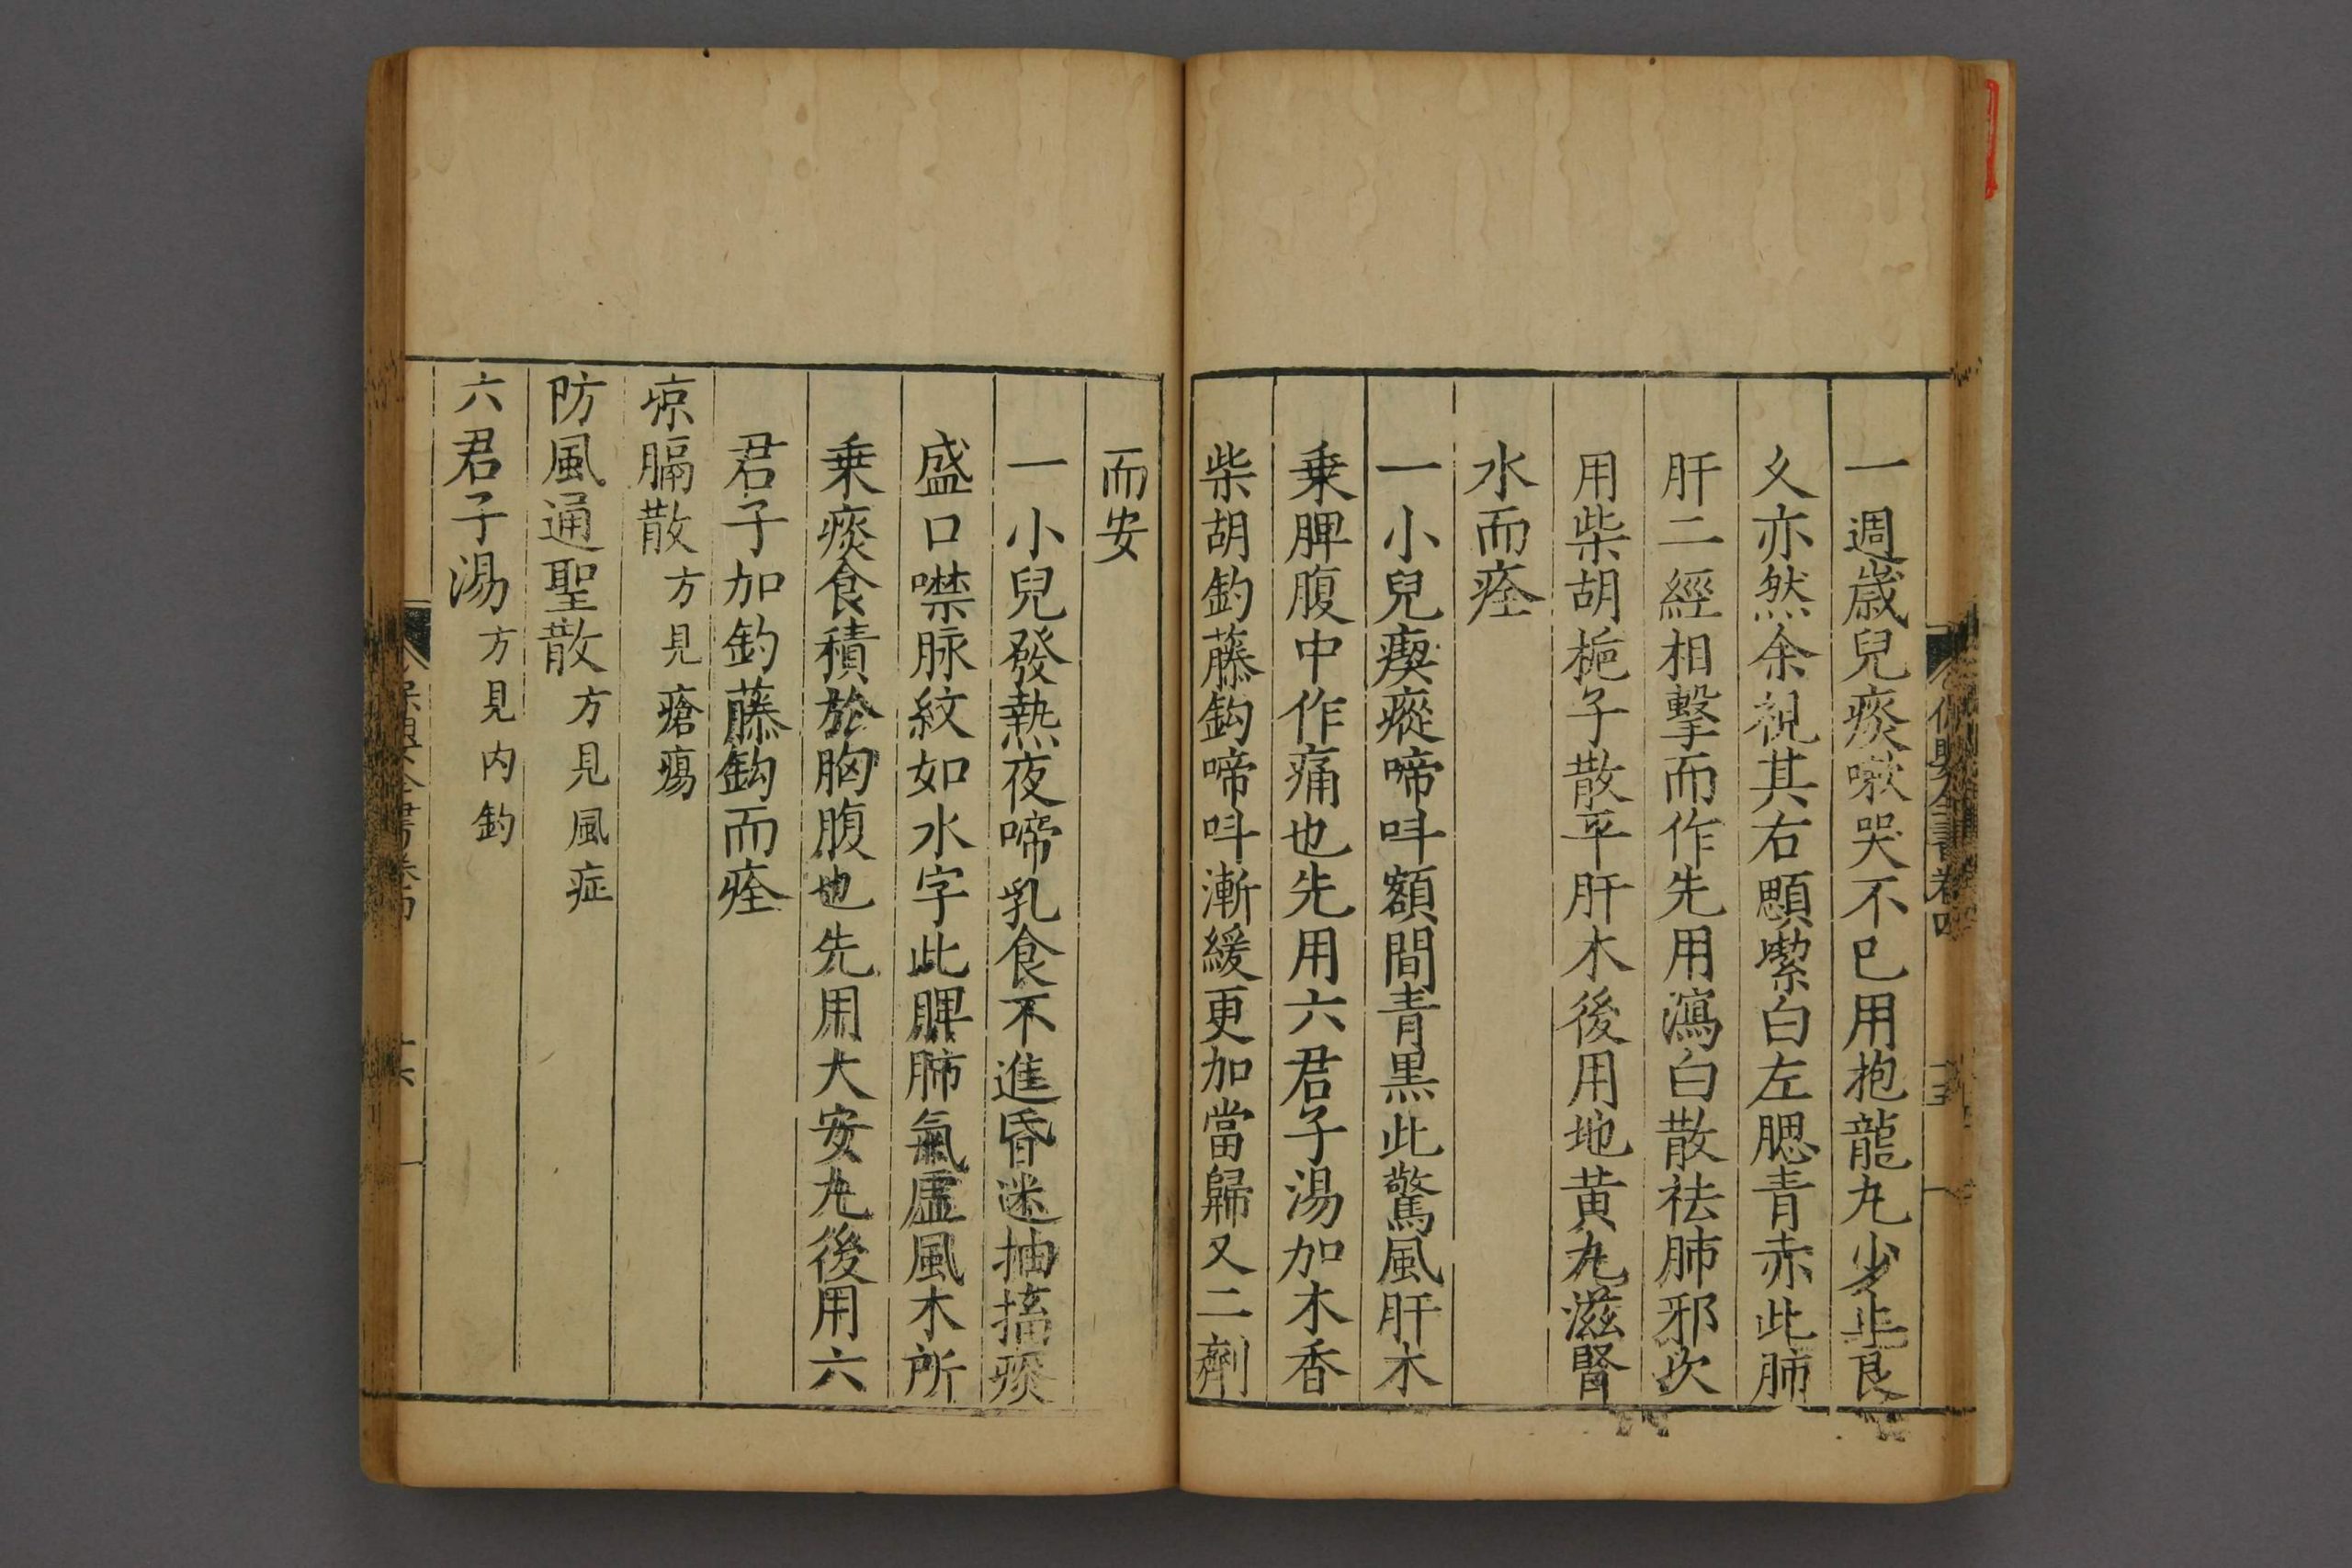 一週歳兒痰嗽哭不已用抱龍丸少止良
久亦然余視其右顋縏白左腮青赤此肺
肝二經相擊而作先用瀉白散祛肺邪次
用柴胡梔子散平肝木後用地黄丸滋腎
水而痊
一小兒瘈瘲啼呌額間青黒此驚風肝木
乗脾腹中作痛也先用六君子湯加木香
柴胡鈎藤鈎啼呌漸緩更加當歸又二劑
而安
一小兒發熱夜啼乳食不進昏迷抽搐痰
盛口噤脉紋如水字此脾肺氣虛風木所
乗痰食積於胸腹也先用大安丸後用六
君子加鈎藤鈎而痊
凉膈散方見瘡瘍
防風通聖散方見風症
六君子湯方見内釣